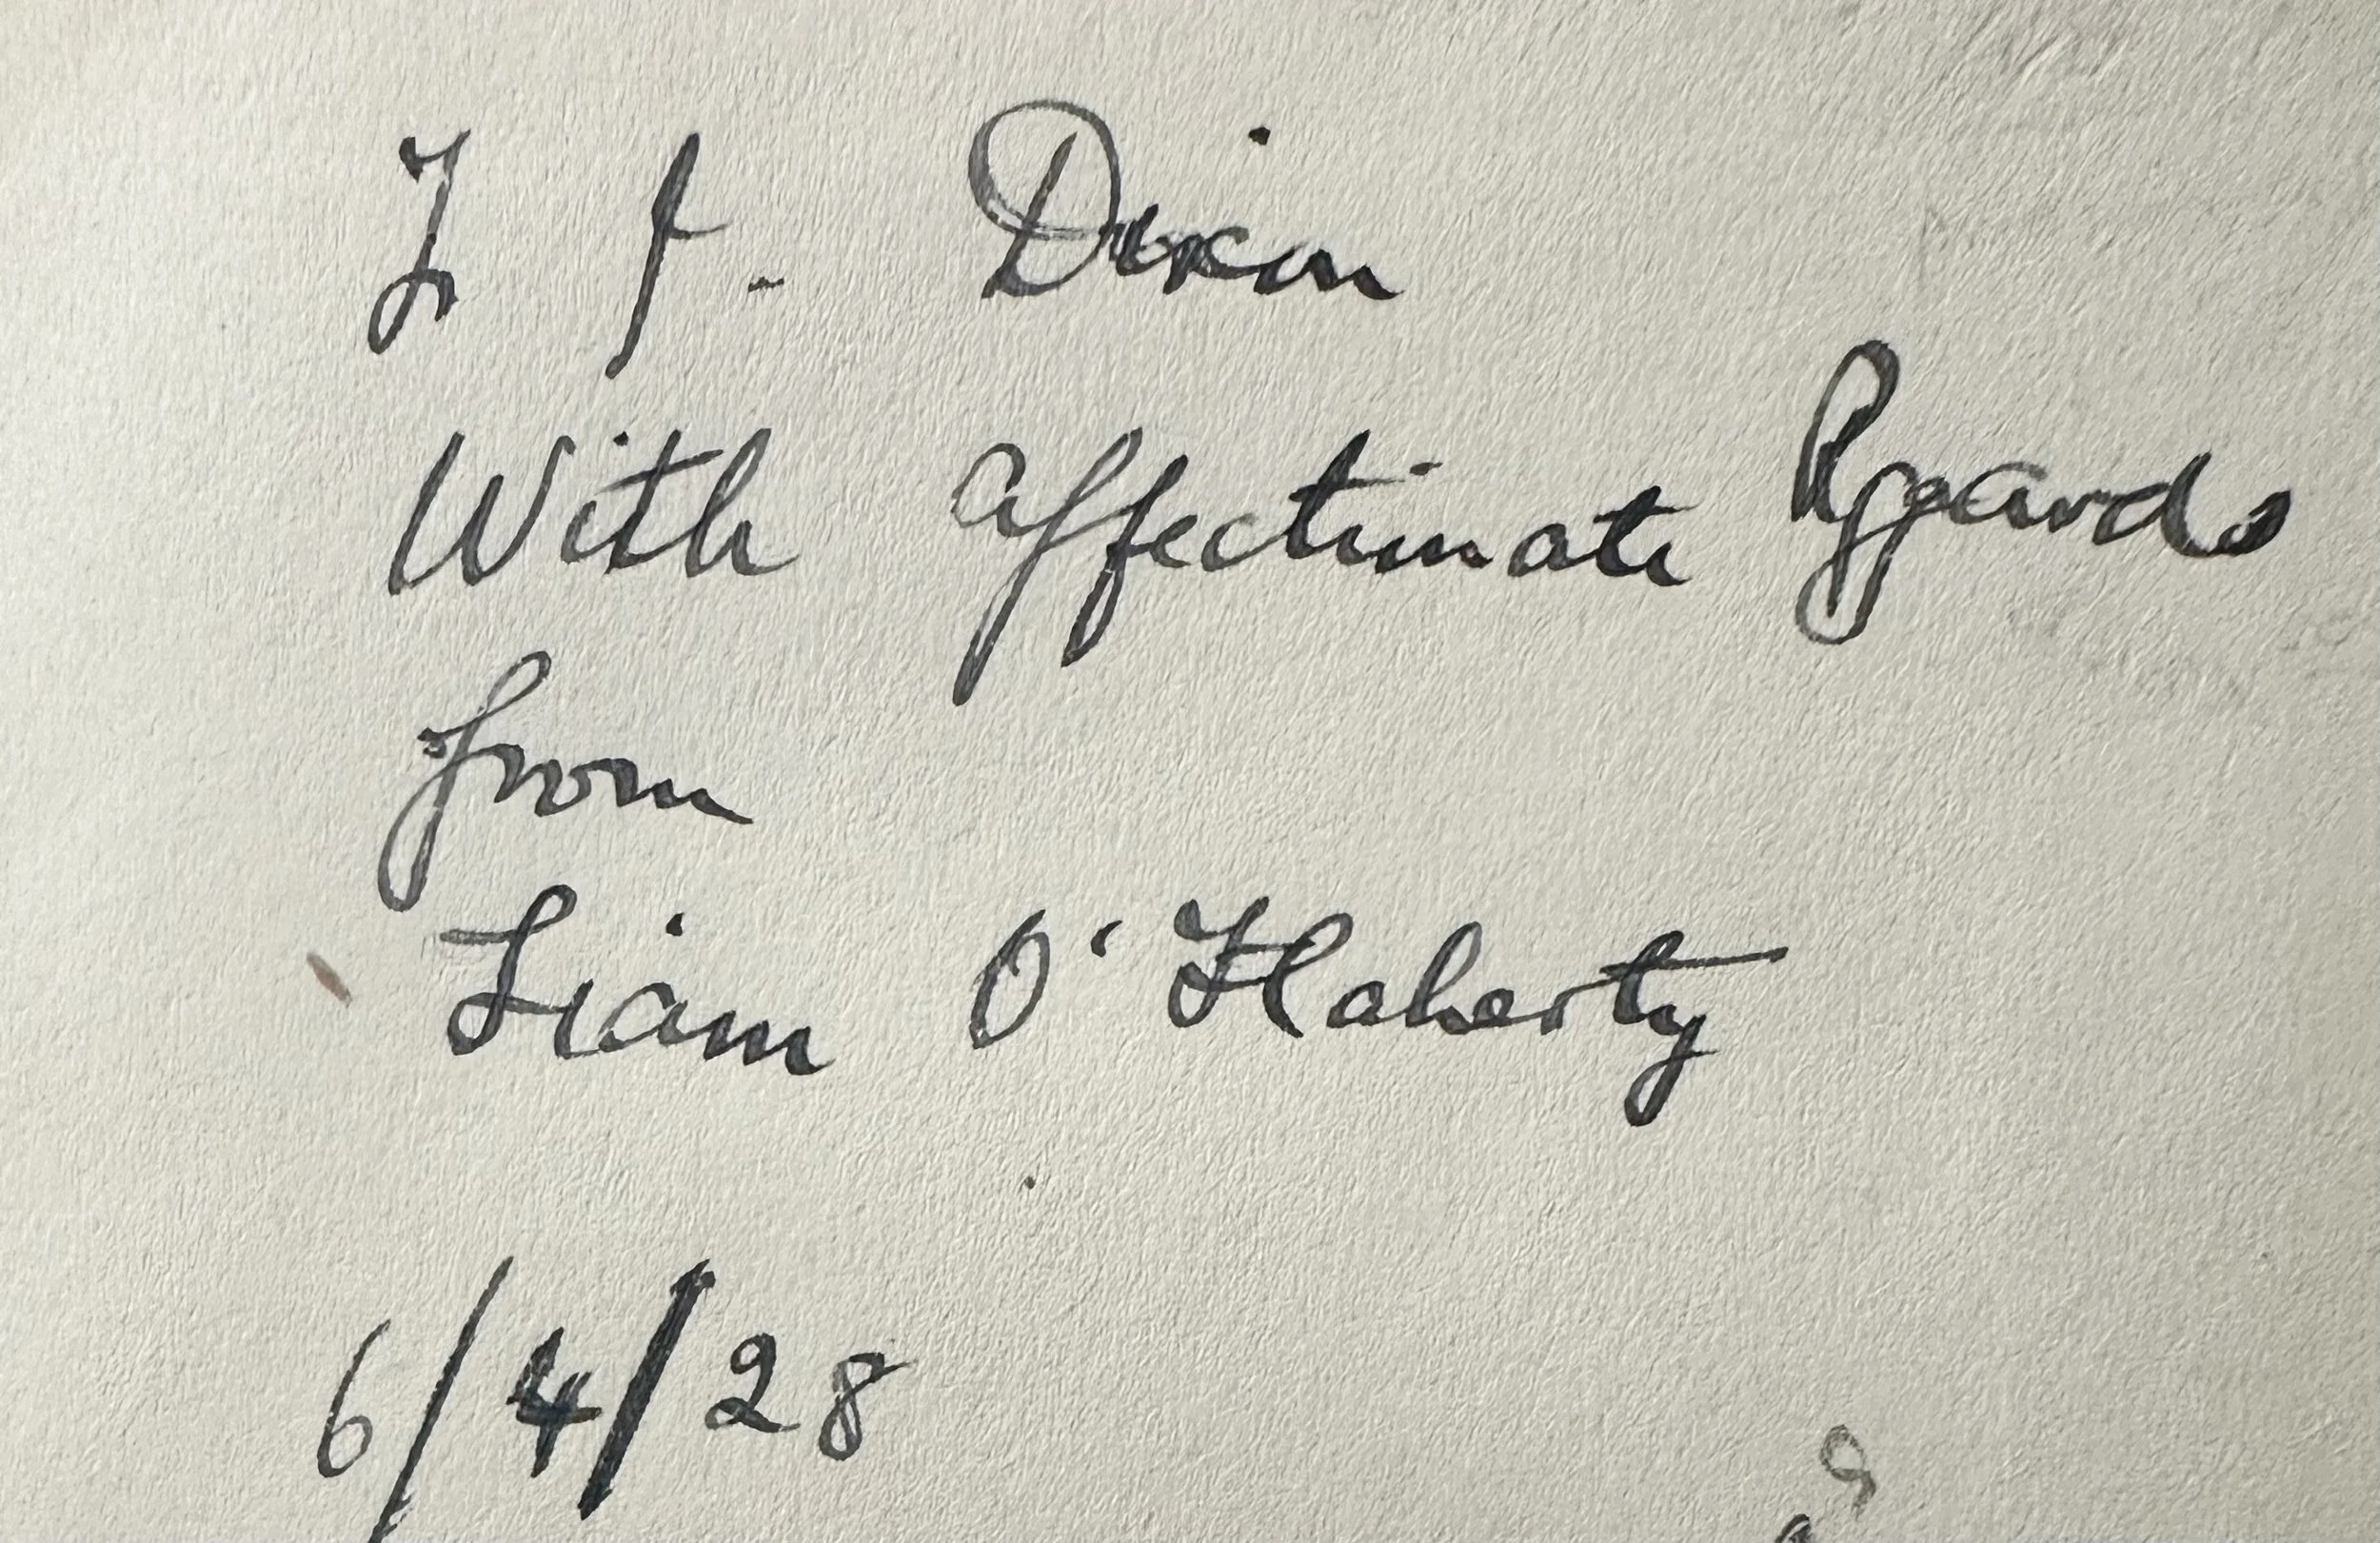 To J. Dixon
With affectionate Regards
from
Liam O'Flaherty
6/4/28